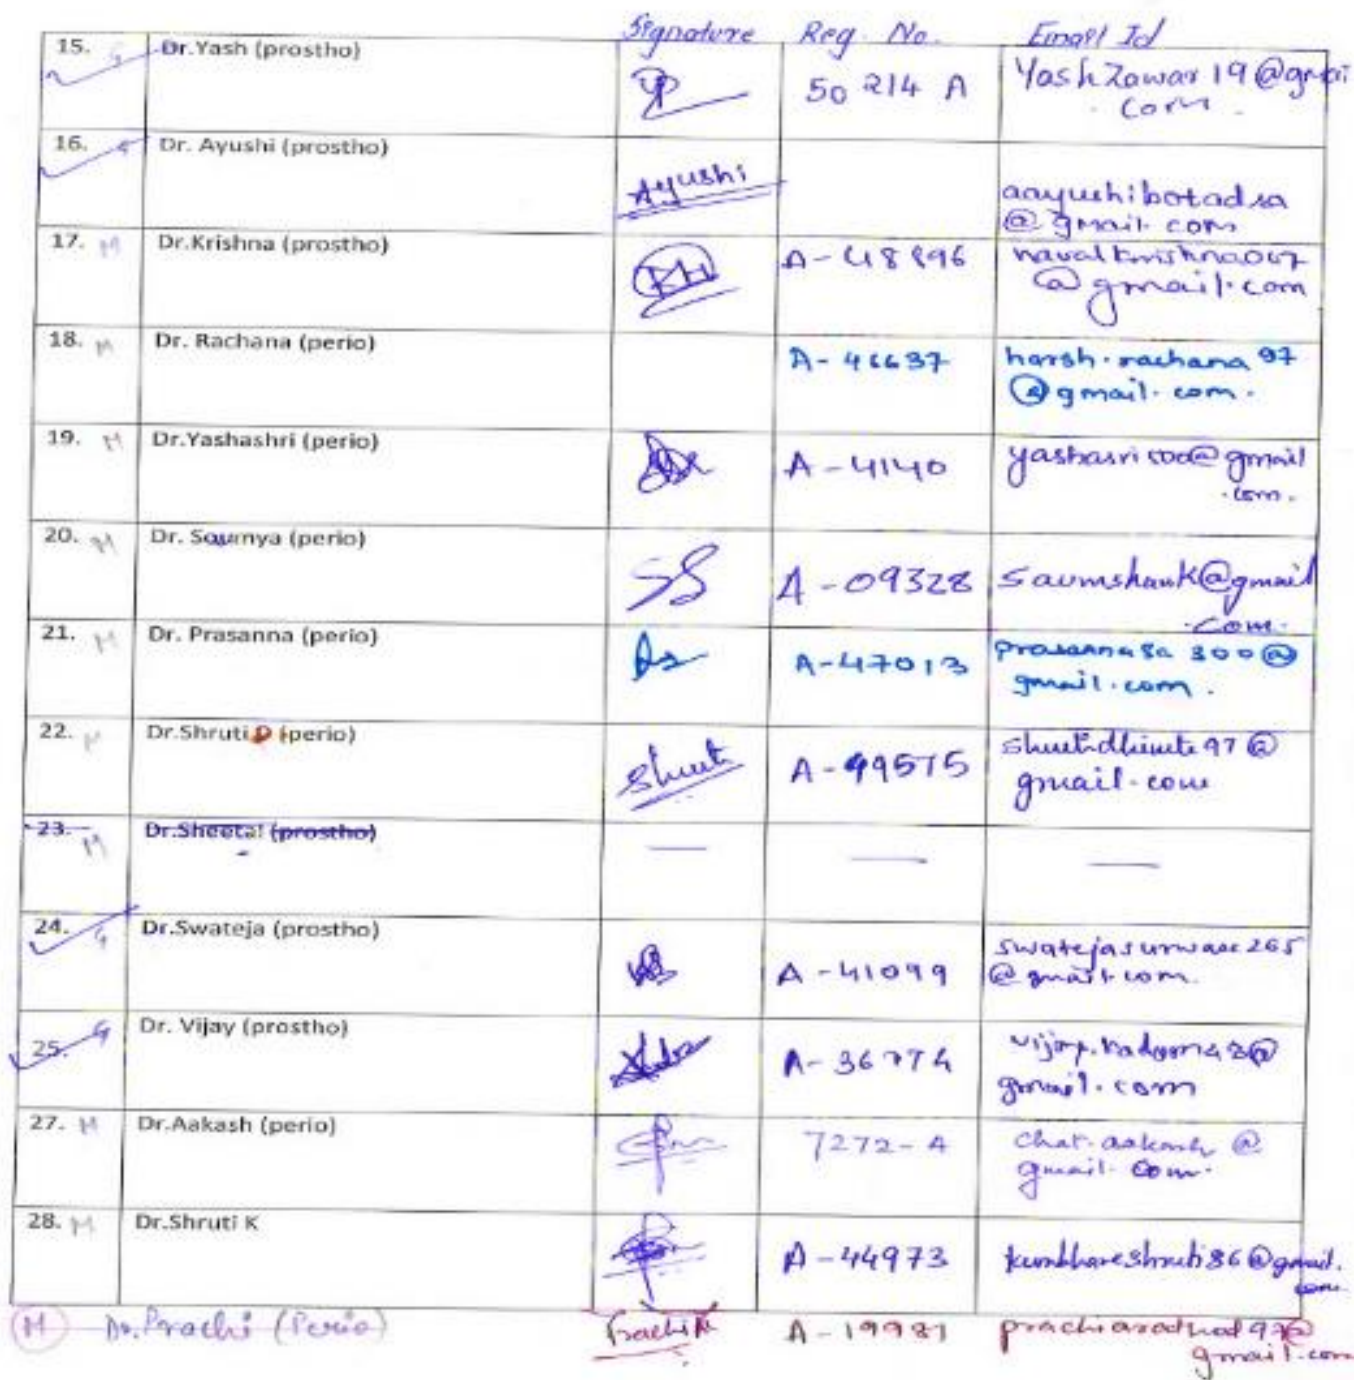 Signature Reg. No. Email Id
15. G Dr.Yash (prostho) 50214 A YashZawar19@gmai
.com.
16. G Dr. Ayushi (prostho) Ayushi aayushibotadra
@gmail.com
17. M Dr.Krishna (prostho) A-48896 navalkrishna067
@gmail.com
18. M Dr. Rachana (perio) A-46637 harsh.rachana97
@gmail.com.
19. M Dr.Yashashri (perio) A-4140 @gmail
.com.
20. M Dr. Saumya (perio) SS A-09328 saumshank@gmail
.com.
21. M Dr. Prasanna (perio) A-47013 300@
gmail.com.
22. M Dr.Shruti D (perio) Shruti A-49575 97@
gmail.com
23. M Dr.Sheetal (prostho) — — —
24. G Dr.Swateja (prostho) A-41099 swatejasurwase265
@gmail.com.
25. G Dr. Vijay (prostho) A-36774
gmail.com
27. M Dr.Aakash (perio) 7272-A chat.aakash@
gmail.com.
28. M Dr.Shruti K A-44973 kumbhareshruti86@gmail.
com.
M Dr.Prachi (Perio) Prachi A-19981
gmail.com